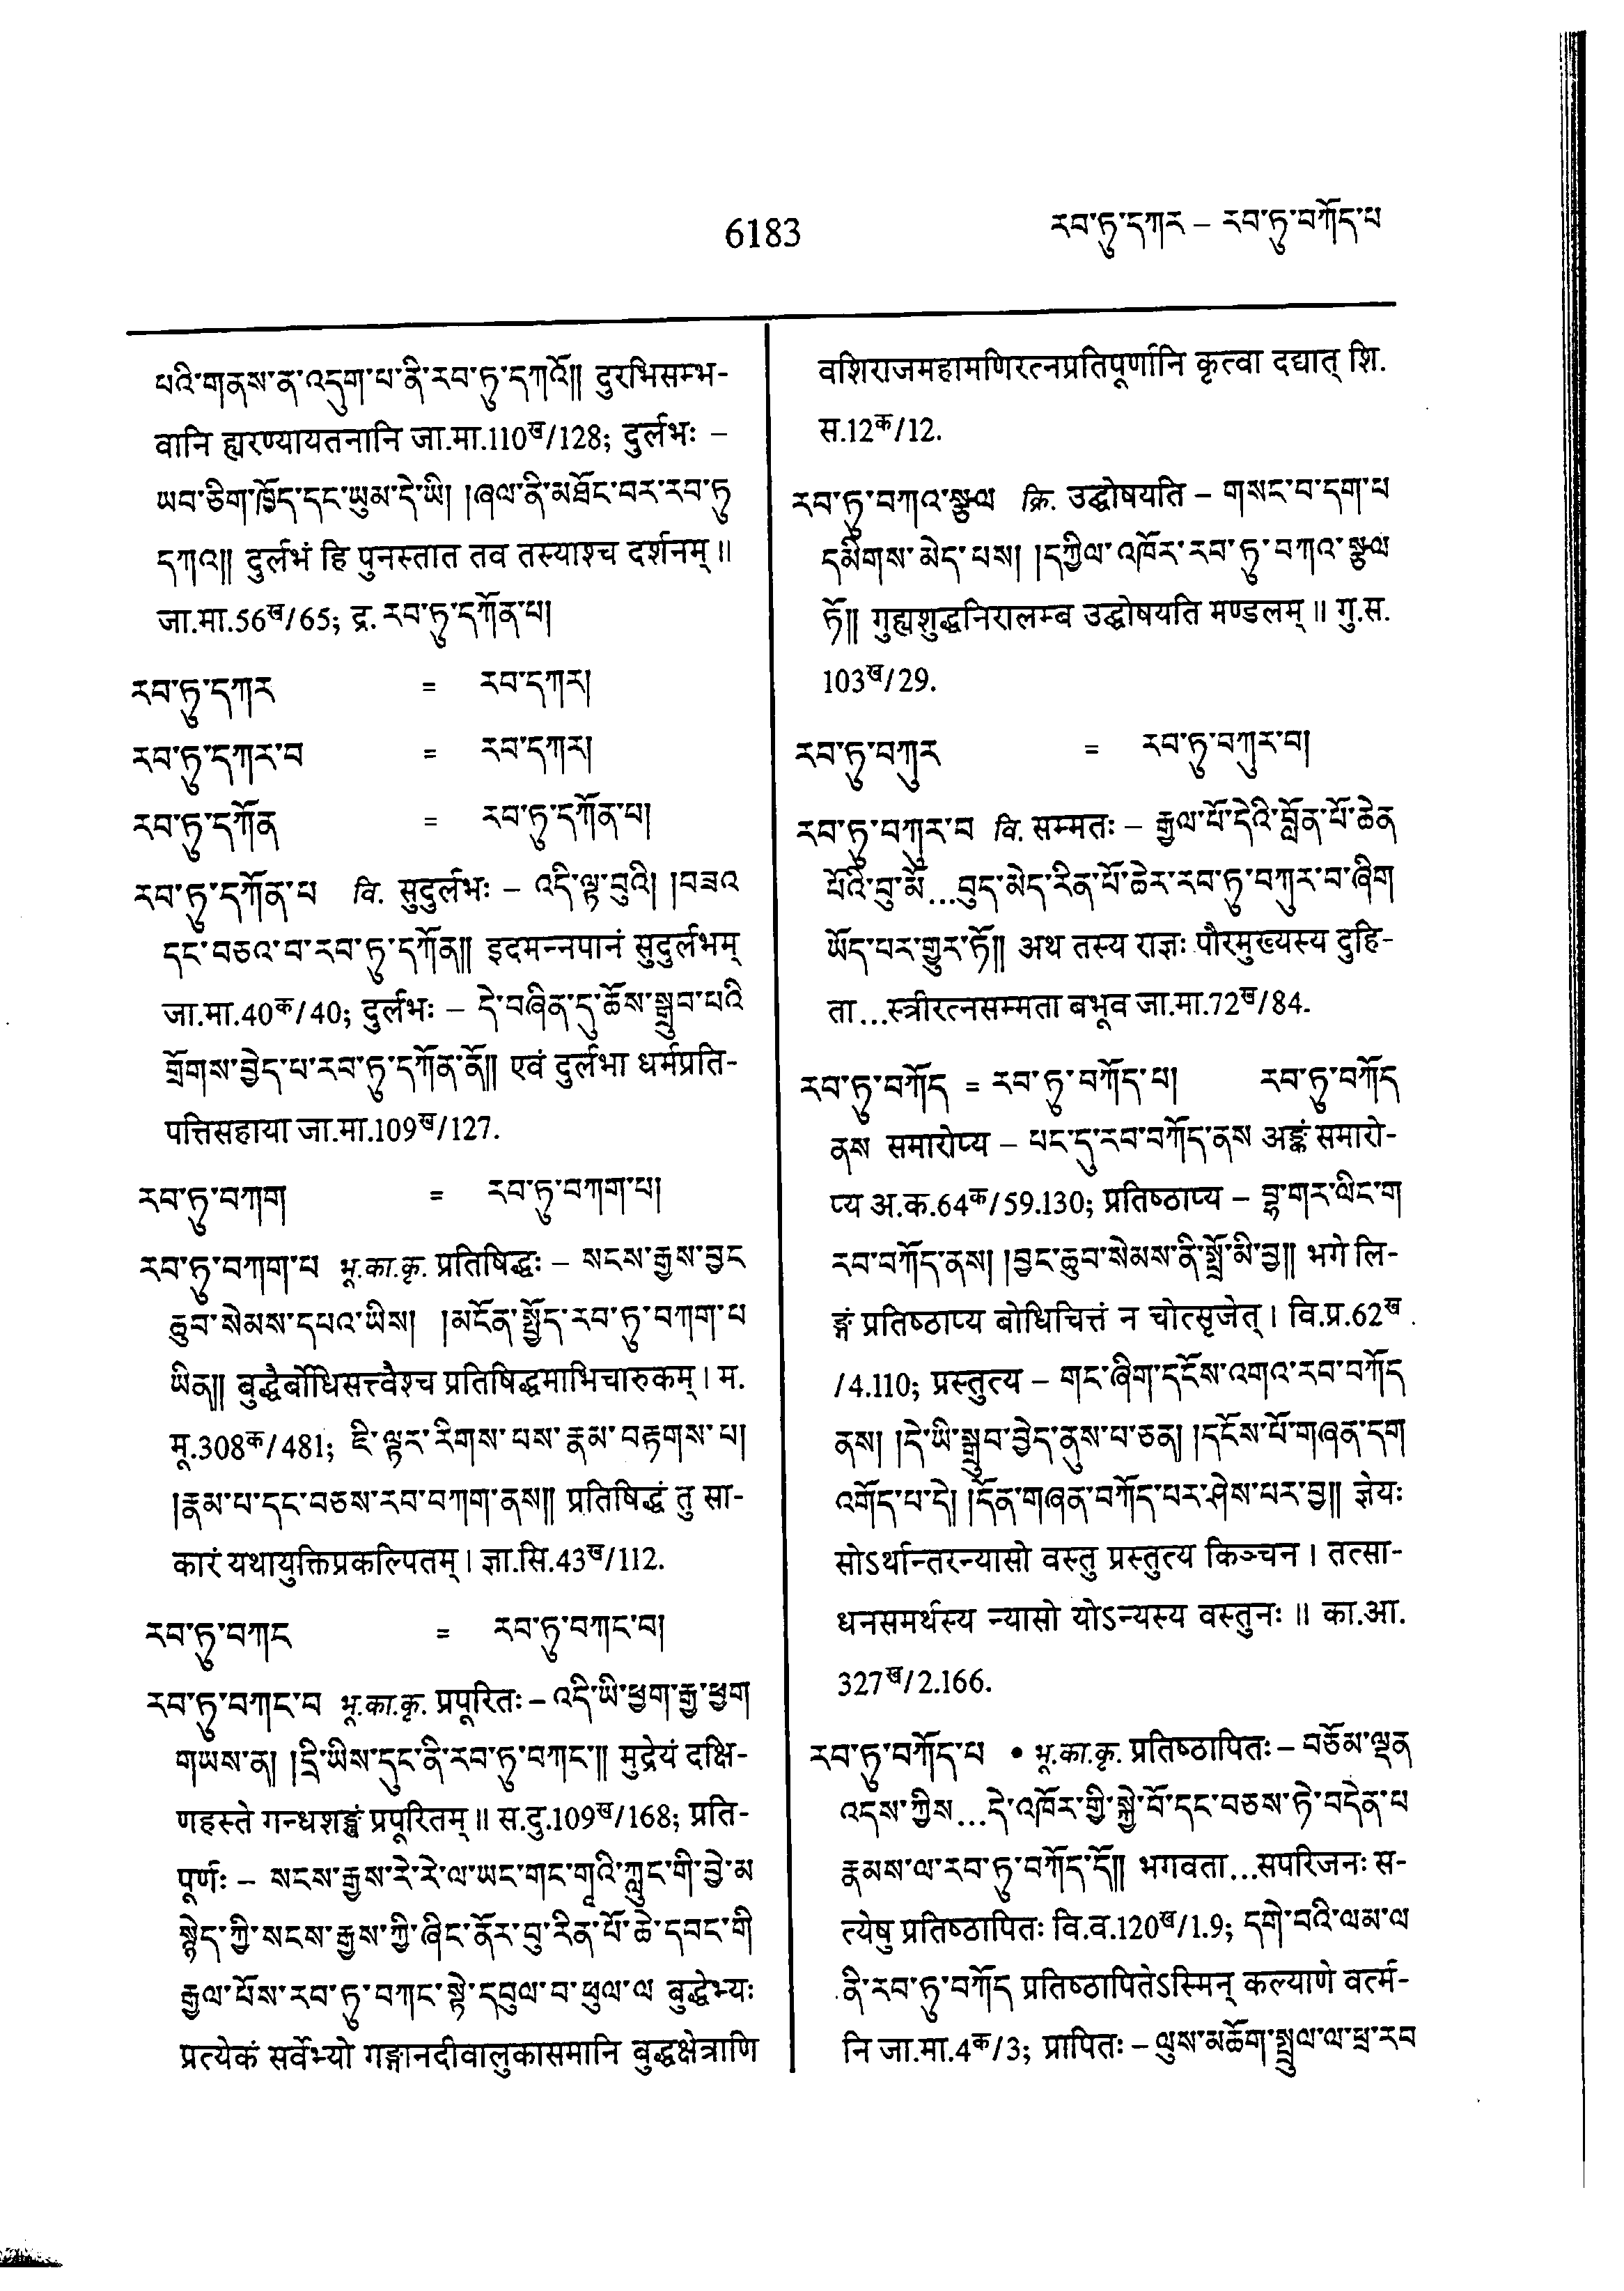 6183
རབ་ཏུ་དཀར – རབ་ཏུ་བཀོད་པ
པའི་གནས་ན་འདུག་པ་ནི་རབ་ཏུ་དཀའོ༎ दुरभिसम्भ-
वानि ह्यरण्यायतनानि जा.मा.110ख/128; दुर्लभः –
ཡབ་ཅིག་ཁྱོད་དང་ཡུམ་དེ་ཡི། །ཞལ་ནི་མཐོང་བར་རབ་ཏུ
དཀའ༎ दुर्लभं हि पुनस्तात तव तस्याश्च दर्शनम् ॥
जा.मा.56ख/65; द्र. རབ་ཏུ་དཀོན་པ།
རབ་ཏུ་དཀར = རབ་དཀར།
རབ་ཏུ་དཀར་བ = རབ་དཀར།
རབ་ཏུ་དཀོན = རབ་ཏུ་དཀོན་པ།
རབ་ཏུ་དཀོན་པ वि. सुदुर्लभः – འདི་ལྟ་བུའི། །བཟའ
དང་བཅའ་བ་རབ་ཏུ་དཀོན༎ इदमन्नपानं सुदुर्लभम्
जा.मा.40क/40; दुर्लभः – དེ་བཞིན་དུ་ཆོས་སྒྲུབ་པའི
གྲོགས་བྱེད་པ་རབ་ཏུ་དཀོན་ནོ༎ एवं दुर्लभा धर्मप्रति-
पत्तिसहाया जा.मा.109ख/127.
རབ་ཏུ་བཀག = རབ་ཏུ་བཀག་པ།
རབ་ཏུ་བཀག་པ भू.का.कृ. प्रतिषिद्धः – སངས་རྒྱས་བྱང
ཆུབ་སེམས་དཔའ་ཡིས། །མངོན་སྤྱོད་རབ་ཏུ་བཀག་པ
ཡིན༎ बुद्धैर्बोधिसत्त्वैश्च प्रतिषिद्धमाभिचारुकम् । म.
मू.308क/481; ཇི་ལྟར་རིགས་པས་རྣམ་བརྟགས་པ།
།རྣམ་པ་དང་བཅས་རབ་བཀག་ནས༎ प्रतिषिद्धं तु सा-
कारं यथायुक्तिप्रकल्पितम् । ज्ञा.सि.43ख/112.
རབ་ཏུ་བཀང = རབ་ཏུ་བཀང་བ།
རབ་ཏུ་བཀང་བ भू.का.कृ. प्रपूरितः – འདི་ཡི་ཕྱག་རྒྱ་ཕྱག
གཡས་ན། །དྲི་ཡིས་དུང་ནི་རབ་ཏུ་བཀང་༎ मुद्रेयं दक्षि-
णहस्ते गन्धशङ्खं प्रपूरितम् ॥ स.दु.109ख/168; प्रति-
पूर्णः – སངས་རྒྱས་རེ་རེ་ལ་ཡང་གང་གཱའི་ཀླུང་གི་བྱེ་མ
སྙེད་ཀྱི་སངས་རྒྱས་ཀྱི་ཞིང་ནོར་བུ་རིན་པོ་ཆེ་དབང་གི
རྒྱལ་པོས་རབ་ཏུ་བཀང་སྟེ་དབུལ་བ་ཕུལ་ལ बुद्धेभ्यः
प्रत्येकं सर्वेभ्यो गङ्गानदीवालुकासमानि बुद्धक्षेत्राणि
वशिराजमहामणिरत्नप्रतिपूर्णानि कृत्वा दद्यात् शि.
स.12क/12.
རབ་ཏུ་བཀའ་སྩལ क्रि. उद्घोषयति – གསང་བ་དག་པ
དམིགས་མེད་པས། །དཀྱིལ་འཁོར་རབ་ཏུ་བཀའ་སྩལ
ཏོ༎ गुह्यशुद्धनिरालम्ब उद्घोषयति मण्डलम् ॥ गु.स.
103ख/29.
རབ་ཏུ་བཀུར = རབ་ཏུ་བཀུར་བ།
རབ་ཏུ་བཀུར་བ वि. सम्मतः – རྒྱལ་པོ་དེའི་བློན་པོ་ཆེན
པོའི་བུ་མོ...བུད་མེད་རིན་པོ་ཆེར་རབ་ཏུ་བཀུར་བ་ཞིག
ཡོད་པར་གྱུར་ཏོ༎ अथ तस्य राज्ञः पौरमुख्यस्य दुहि-
ता...स्त्रीरत्नसम्मता बभूव जा.मा.72ख/84.
རབ་ཏུ་བཀོད = རབ་ཏུ་བཀོད་པ། རབ་ཏུ་བཀོད
ནས समारोप्य – པང་དུ་རབ་བཀོད་ནས अङ्कं समारो-
प्य अ.क.64क/59.130; प्रतिष्ठाप्य – བྷ་གར་ལིང་ག
རབ་བཀོད་ནས། །བྱང་ཆུབ་སེམས་ནི་སྤྲོ་མི་བྱ༎ भगे लि-
ङ्गं प्रतिष्ठाप्य बोधिचित्तं न चोत्सृजेत् । वि.प्र.62ख
/4.110; प्रस्तुत्य – གང་ཞིག་དངོས་འགའ་རབ་བཀོད
ནས། །དེ་ཡི་སྒྲུབ་བྱེད་ནུས་པ་ཅན། །དངོས་པོ་གཞན་དག
འགོད་པ་དེ། །དོན་གཞན་བཀོད་པར་ཤེས་པར་བྱ༎ ज्ञेयः
सोऽर्थान्तरन्यासो वस्तु प्रस्तुत्य किञ्चन । तत्सा-
धनसमर्थस्य न्यासो योऽन्यस्य वस्तुनः ॥ का.आ.
327ख/2.166.
རབ་ཏུ་བཀོད་པ • भू.का.कृ. प्रतिष्ठापितः – བཅོམ་ལྡན
འདས་ཀྱིས...དེ་འཁོར་གྱི་སྐྱེ་བོ་དང་བཅས་ཏེ་བདེན་པ
རྣམས་ལ་རབ་ཏུ་བཀོད་དོ༎ भगवता...सपरिजनः स-
त्येषु प्रतिष्ठापितः वि.व.120ख/1.9; དགེ་བའི་ལམ་ལ
ནི་རབ་ཏུ་བཀོད प्रतिष्ठापितेऽस्मिन् कल्याणे वर्त्म-
नि जा.मा.4क/3; प्रापितः – ལུས་མཆོག་སྤྲུལ་ལ་ཕྲ་རབ